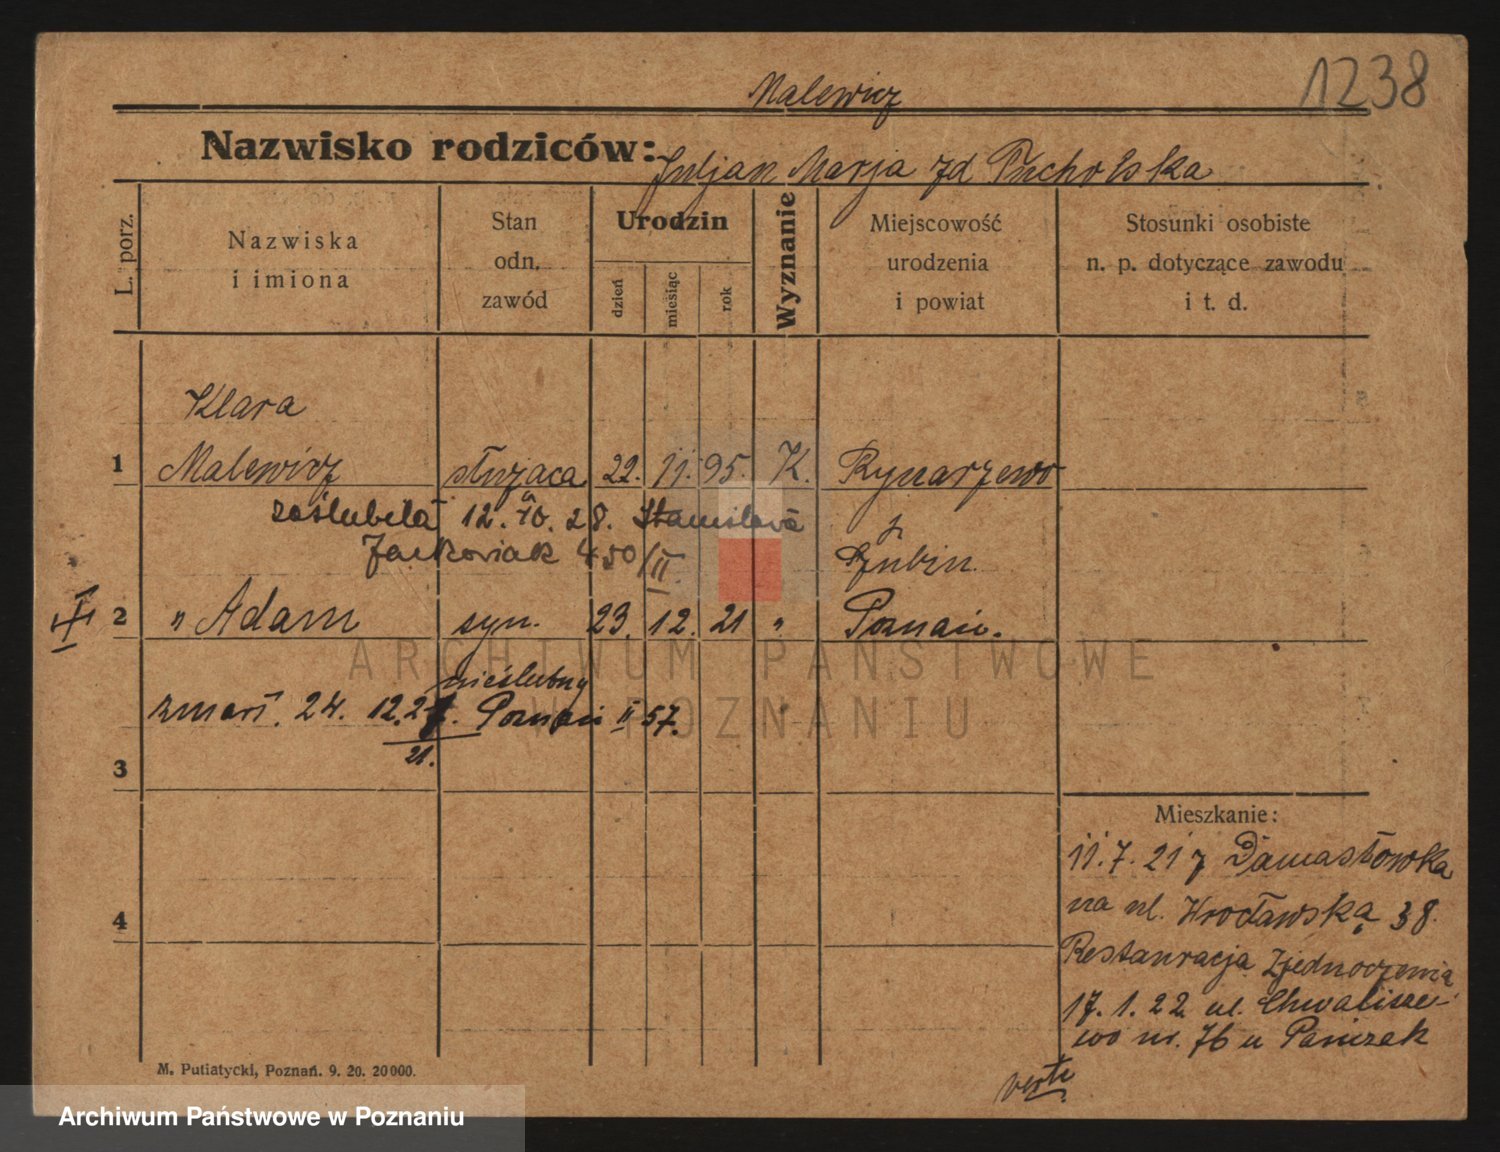 1238
Malewicz
Nazwisko rodziców: Juljan Marja zd Pucholska
L. porz.
Nazwiska
i imiona
Stan
odn.
zawód
Urodzin
dzień
miesiąc
rok
Wyznanie
Miejscowość
urodzenia
i powiat
Stosunki osobiste
n. p. dotyczące zawodu
i t. d.
Klara
1 Malewicz służąca 22. 11. 95. K. Rynarzewo
zaślubiła 12. 28. Stanisława
Jackowiak 450/II
Szubin.
2 " Adam syn. 23. 12. 21 " Poznań.
nieślubny
zmarł. 24. 12. Poznań II 57.
21.
3
4
Mieszkanie:
11. 7. 21 z Damasłowka
na ul. Wrocławską 38.
Restauracja Zjednoczenia
17. 1. 22. ul. Chwalisze-
wo nr. 76 u
verte
M. Putiatycki, Poznań. 9. 20. 20000.
ARCHIWUM PAŃSTWOWE
W POZNANIU
Archiwum Państwowe w Poznaniu